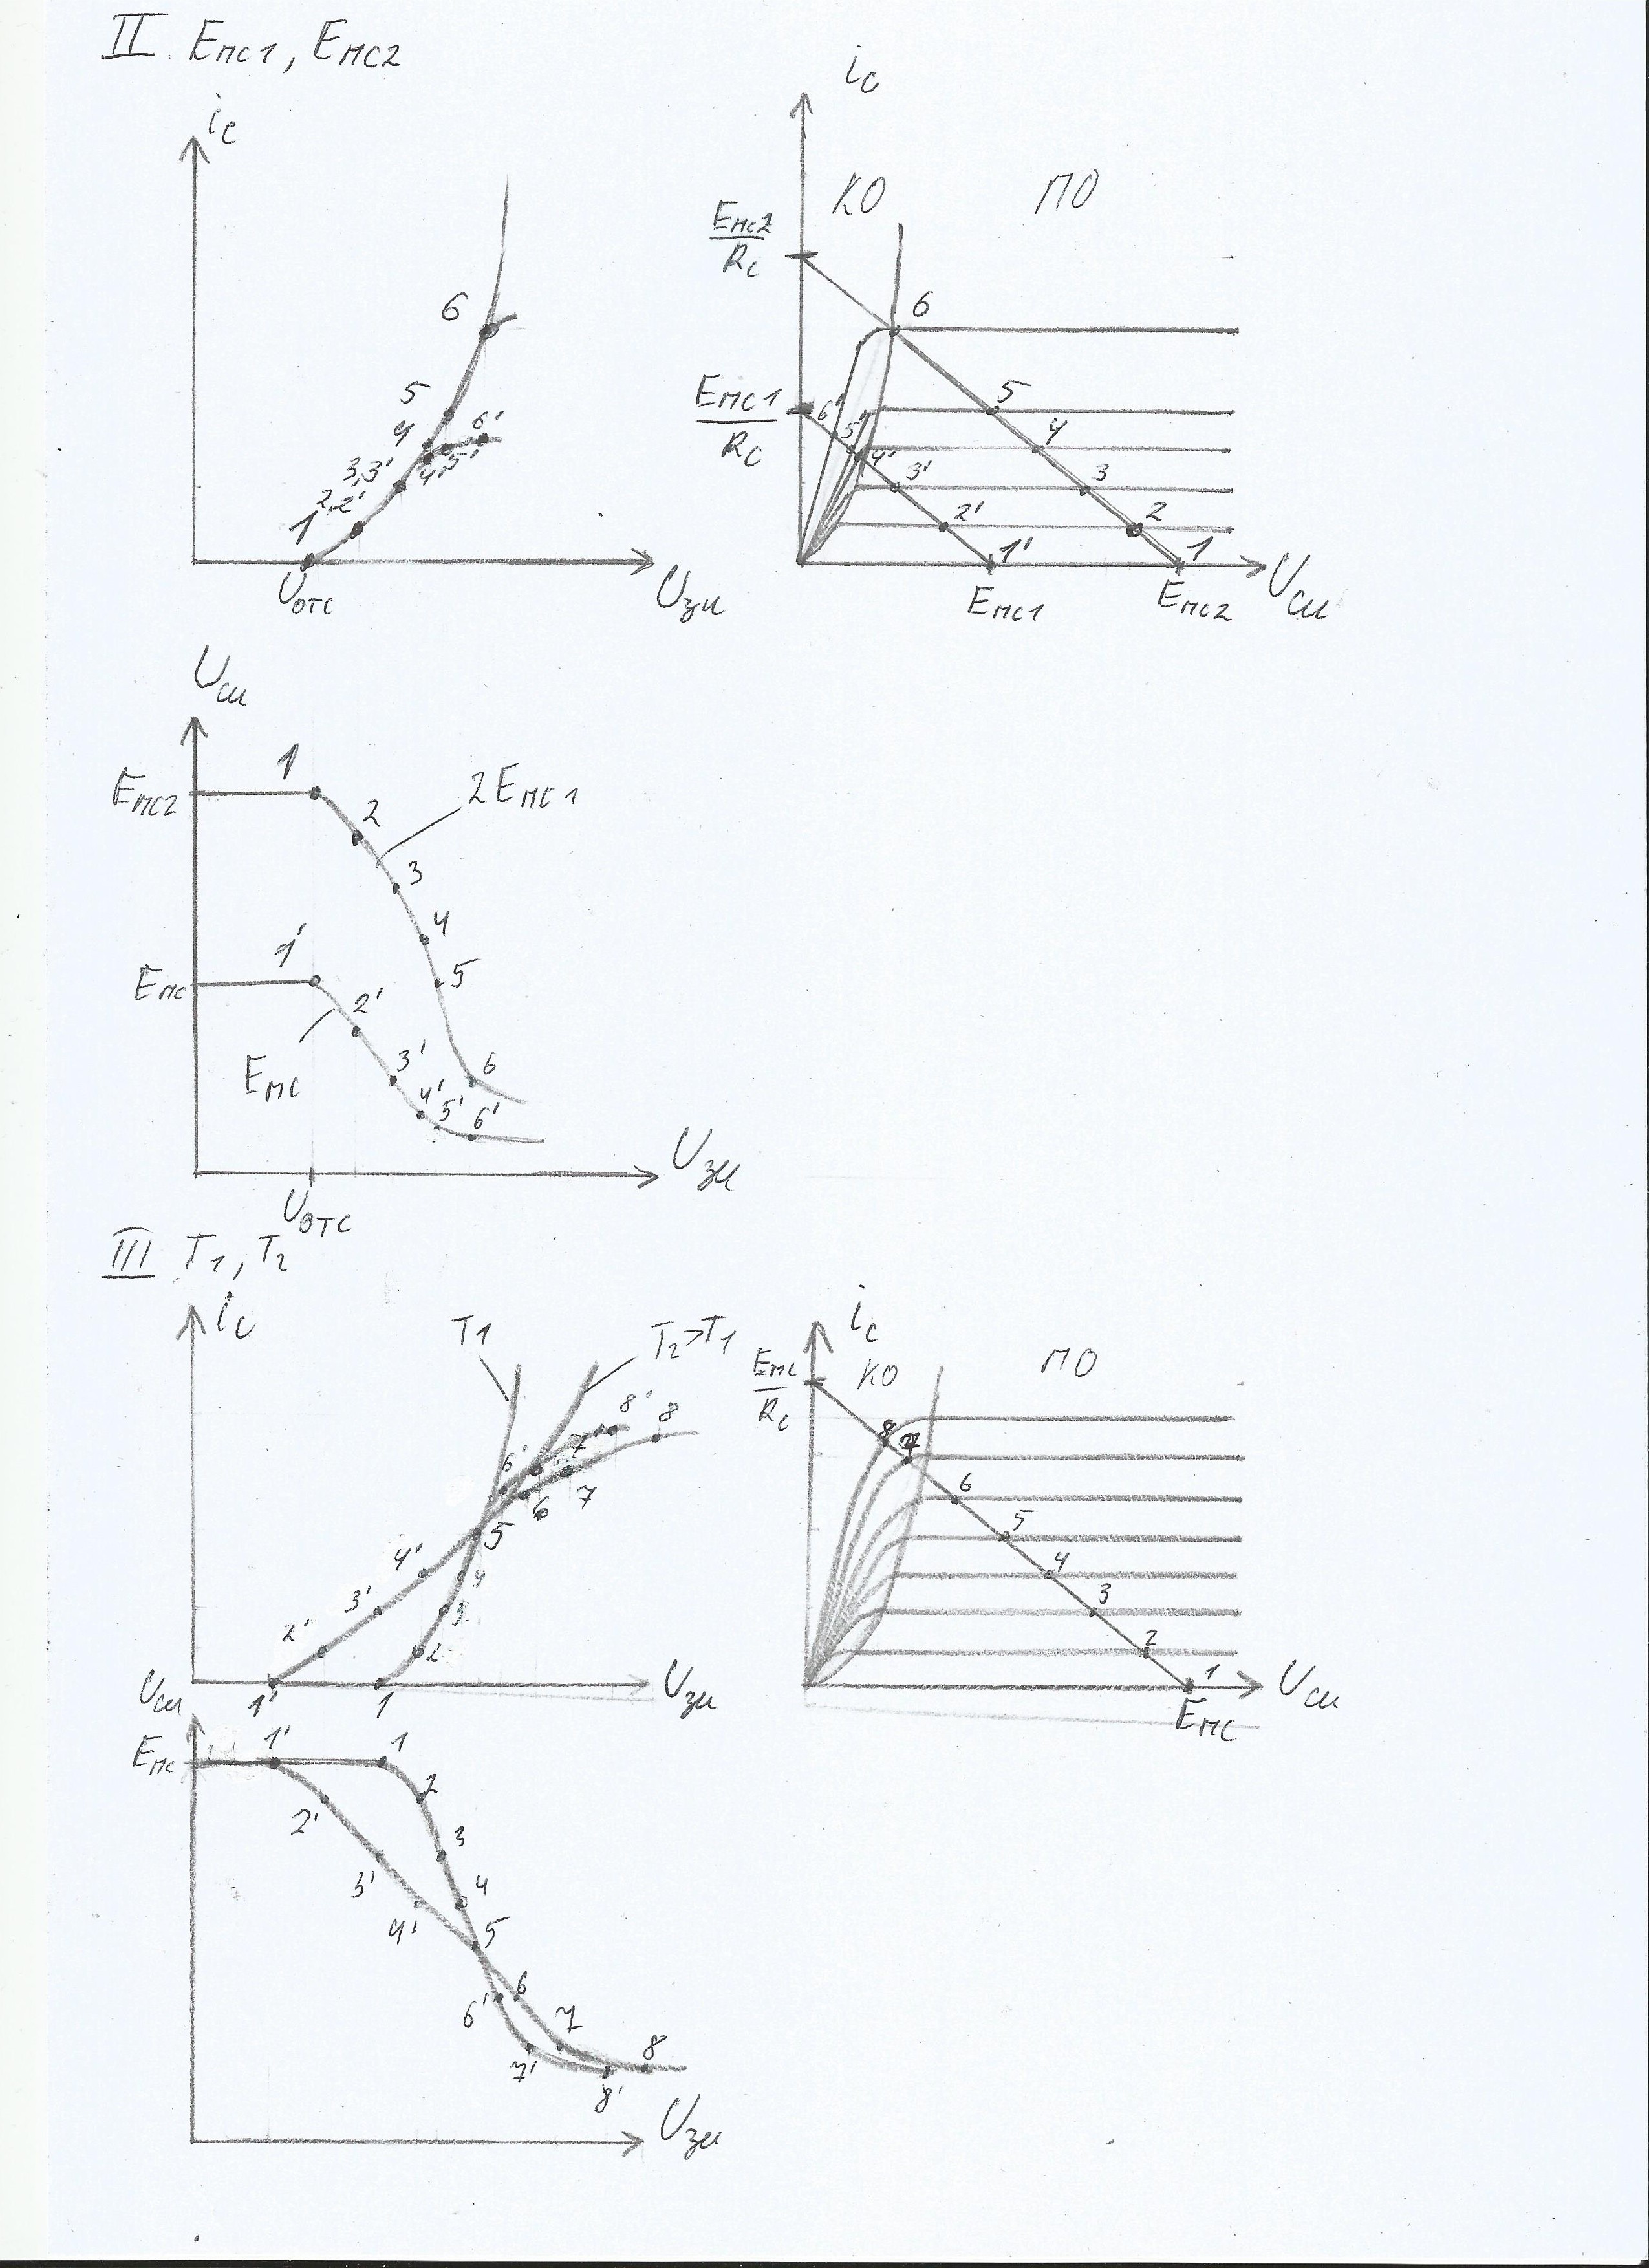 II. Eпс1, Eпс2
iс
6
5
4
6'
5'
4'
3,3'
2,2'
1
Uотс
Uзи
iс
КО
ПО
Eпс2
Rс
Eпс1
Rс
6
5
4
3
2
1
6'
5'
4'
3'
2'
1'
Eпс1
Eпс2
Uси
Uси
Eпс2
1
2
2Eпс1
3
4
5
6
Eпс
1'
2'
3'
4'
5'
6'
Eпс
Uзи
Uотс
III T1, T2
iс
T1
T2>T1
8'
8
7'
7
6'
6
5
4'
4
3'
3
2'
2
1'
1
Uзи
iс
Eпс
Rс
КО
ПО
8
7
6
5
4
3
2
1
Eпс
Uси
Uси
Eпс
1'
1
2
2'
3
3'
4
4'
5
6
6'
7
7'
8
8'
Uзи